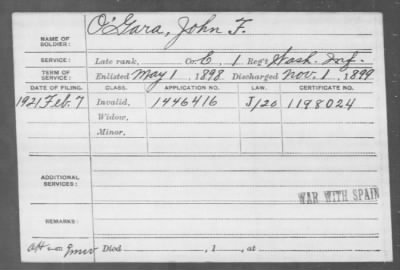 NAME OF SOLDIER: O'Gara, John F.
SERVICE: Late rank, Co. E, 1 Reg't Wash. Inf.
TERM OF SERVICE: Enlisted May 1, 1898 Discharged Nov. 1, 1899
DATE OF FILING. CLASS. APPLICATION NO. LAW. CERTIFICATE NO.
1921 Feb. 7 Invalid, 1446416 J/20 1198024
Widow,
Minor.
ADDITIONAL SERVICES:
WAR WITH SPAIN
REMARKS:
Died , 1 , at